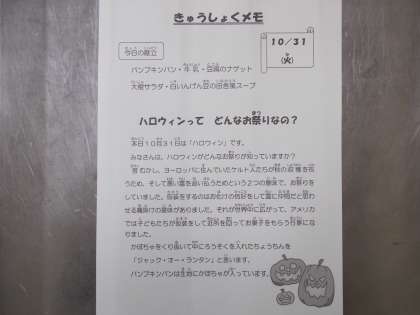 きゅうしょくメモ
10/31
(火)
今日の献立
パンプキンパン・牛乳・豆腐のナゲット
大根サラダ・白いんげん豆の田舎風スープ
ハロウィンって どんなお祭りなの?
本日10月31日は「ハロウィン」です。
みなさんは、ハロウィンがどんなお祭りか知っていますか?
昔むかし、ヨーロッパに住んでいたケルト人たちが秋の収穫を祝
うため、そして悪い霊を追い払うためという2つの意味で、お祭りを
していました。仮装をするのはおばけの格好をして霊に仲間だと思わ
せる魔除けの意味がありました。それが世界中に広がって、アメリカ
では子どもたちが仮装をして近所を回ってお菓子をもらう行事にな
りました。
かぼちゃをくり抜いて中にろうそくを入れたちょうちんを
「ジャック・オー・ランタン」と言います。
パンプキンパンは生地にかぼちゃが入っています。